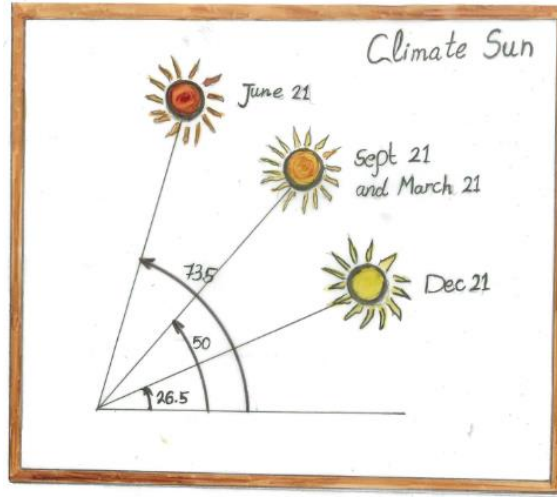 Climate Sun
June 21
Sept 21
and March 21
Dec 21
73.5
50
26.5